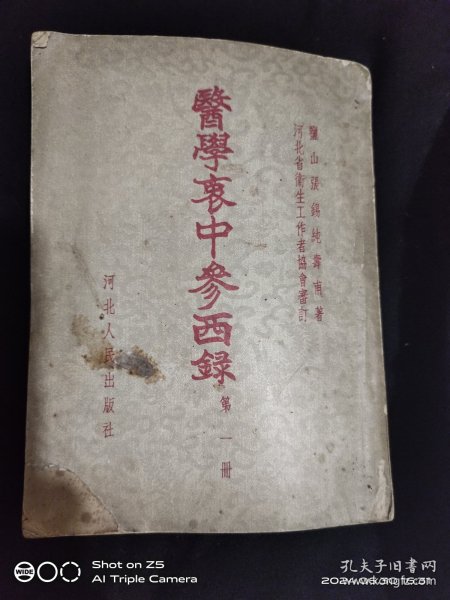 鹽山張錫純壽甫著
河北省衛生工作者協會審訂
醫學衷中參西録
第一冊
河北人民出版社
Shot on Z5
AI Triple Camera
WIDE
孔夫子旧书网